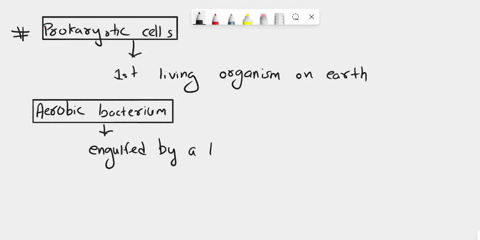 # Prokaryotic cells
1st living organism on earth
Aerobic bacterium
engulfed by a l